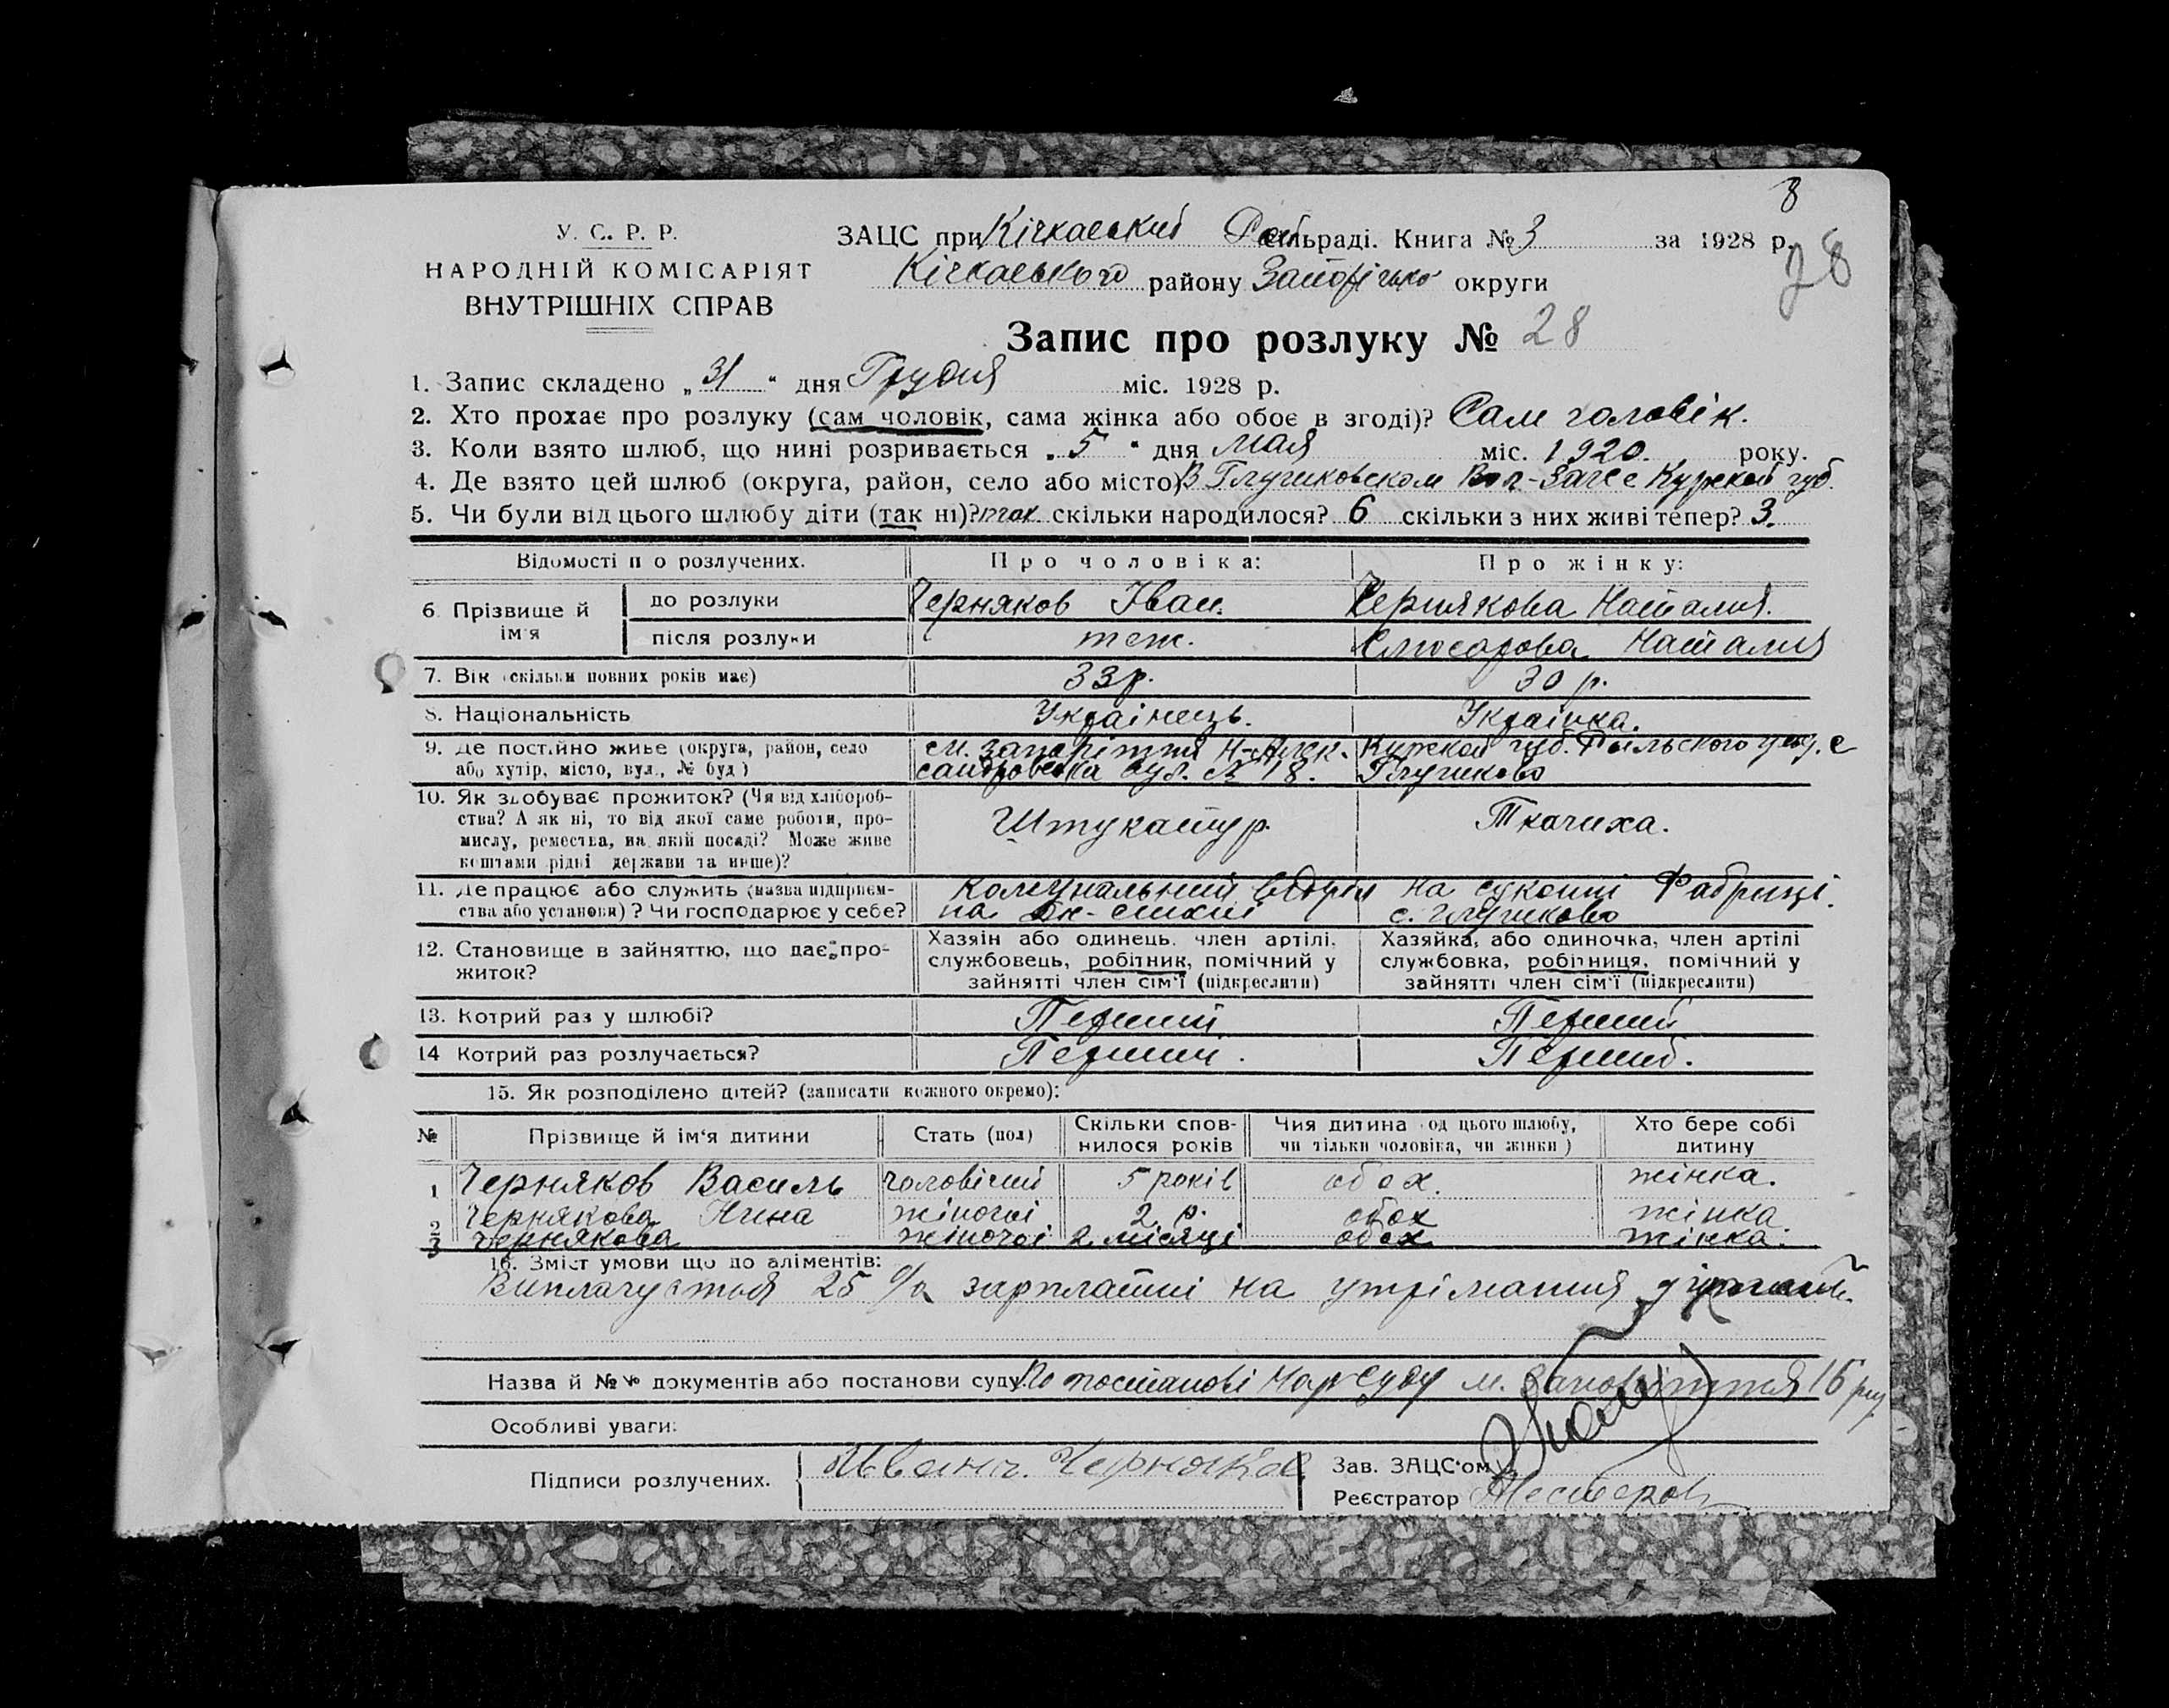 8
28
У. С. Р. Р.
НАРОДНІЙ КОМІСАРІЯТ
ВНУТРІШНІХ СПРАВ
ЗАЦС при Кічкаський сільраді. Книга № 3 за 1928 р.
Кічкаського району Запорізько округи
Запис про розлуку № 28
1. Запис складено „ 31 “ дня Грудня міс. 1928 р.
2. Хто прохає про розлуку (сам чоловік, сама жінка або обоє в згоді)? Сам чоловік.
3. Коли взято шлюб, що нині розривається „ 5 “ дня мая міс. 1920. року.
4. Де взято цей шлюб (округа, район, село або місто) В Глушковском Вол-Загсе Курской губ.
5. Чи були від цього шлюбу діти (так ні)? так скільки народилося? 6 скільки з них живі тепер? 3.
Відомості п о розлучених. Про чоловіка: Про жінку:
6. Прізвище й ім'я до розлуки Черняков Іван. Чернякова Наталия.
після розлуки теж. Слюсарова Наталия
7. Вік (скільки повних років має) 33 р. 30 р.
8. Національність Українець. Українка.
9. Де постійно живе (округа, район, село м. Запоріжжя Н-Алек- Курской губ. Рыльского уезд. с
або хутір, місто, вул., № буд) сандровська вул. № 18. Глушково
10. Як здобуває прожиток? (Чи від хлібороб-
ства? А як ні, то від якої саме роботи, про- Штукатур. Ткачиха.
мислу, ремества, на якій посаді? Може живе
коштами рідні держави та инше)?
11. Де працює або служить (назва підприєм- Комунальний відділ на суконні Фабриці.
ства або установи)? Чи господарює у себе? на с. Глушково
12. Становище в зайняттю, що дає про-
житок?
Хазяїн або одинець, член артілі,
службовець, робітник, помічний у
зайнятті член сім'ї (підкреслити)
Хазяйка, або одиночка, член артілі
службовка, робітниця, помічний у
зайнятті член сім'ї (підкреслити)
13. Котрий раз у шлюбі? Перший Перший
14 Котрий раз розлучається? Перший. Перший.
15. Як розподілено дітей? (записати кожного окремо):
№ Прізвище й ім'я дитини Стать (пол) Скільки спов-нилося років Чия дитина (од цього шлюбу, чи тільки чоловіка, чи жінки) Хто бере собі дитину
1 Черняков Василь чоловічий 5 років обох. жінка.
2 Чернякова Нина жіночої 2 р. обох жінка
3 Чернякова жіночої 2 місяці обох жінка.
16. Зміст умови що до аліментів:
Виплачується 25 % зарплатні на утрімання
Назва й №№ документів або постанови суду: По постанові НарСуду м. Запоріжжя 16
Особливі уваги:
Підписи розлучених. Иванъ Черняков Зав. ЗАЦС'ом
Реєстратор Нестеров